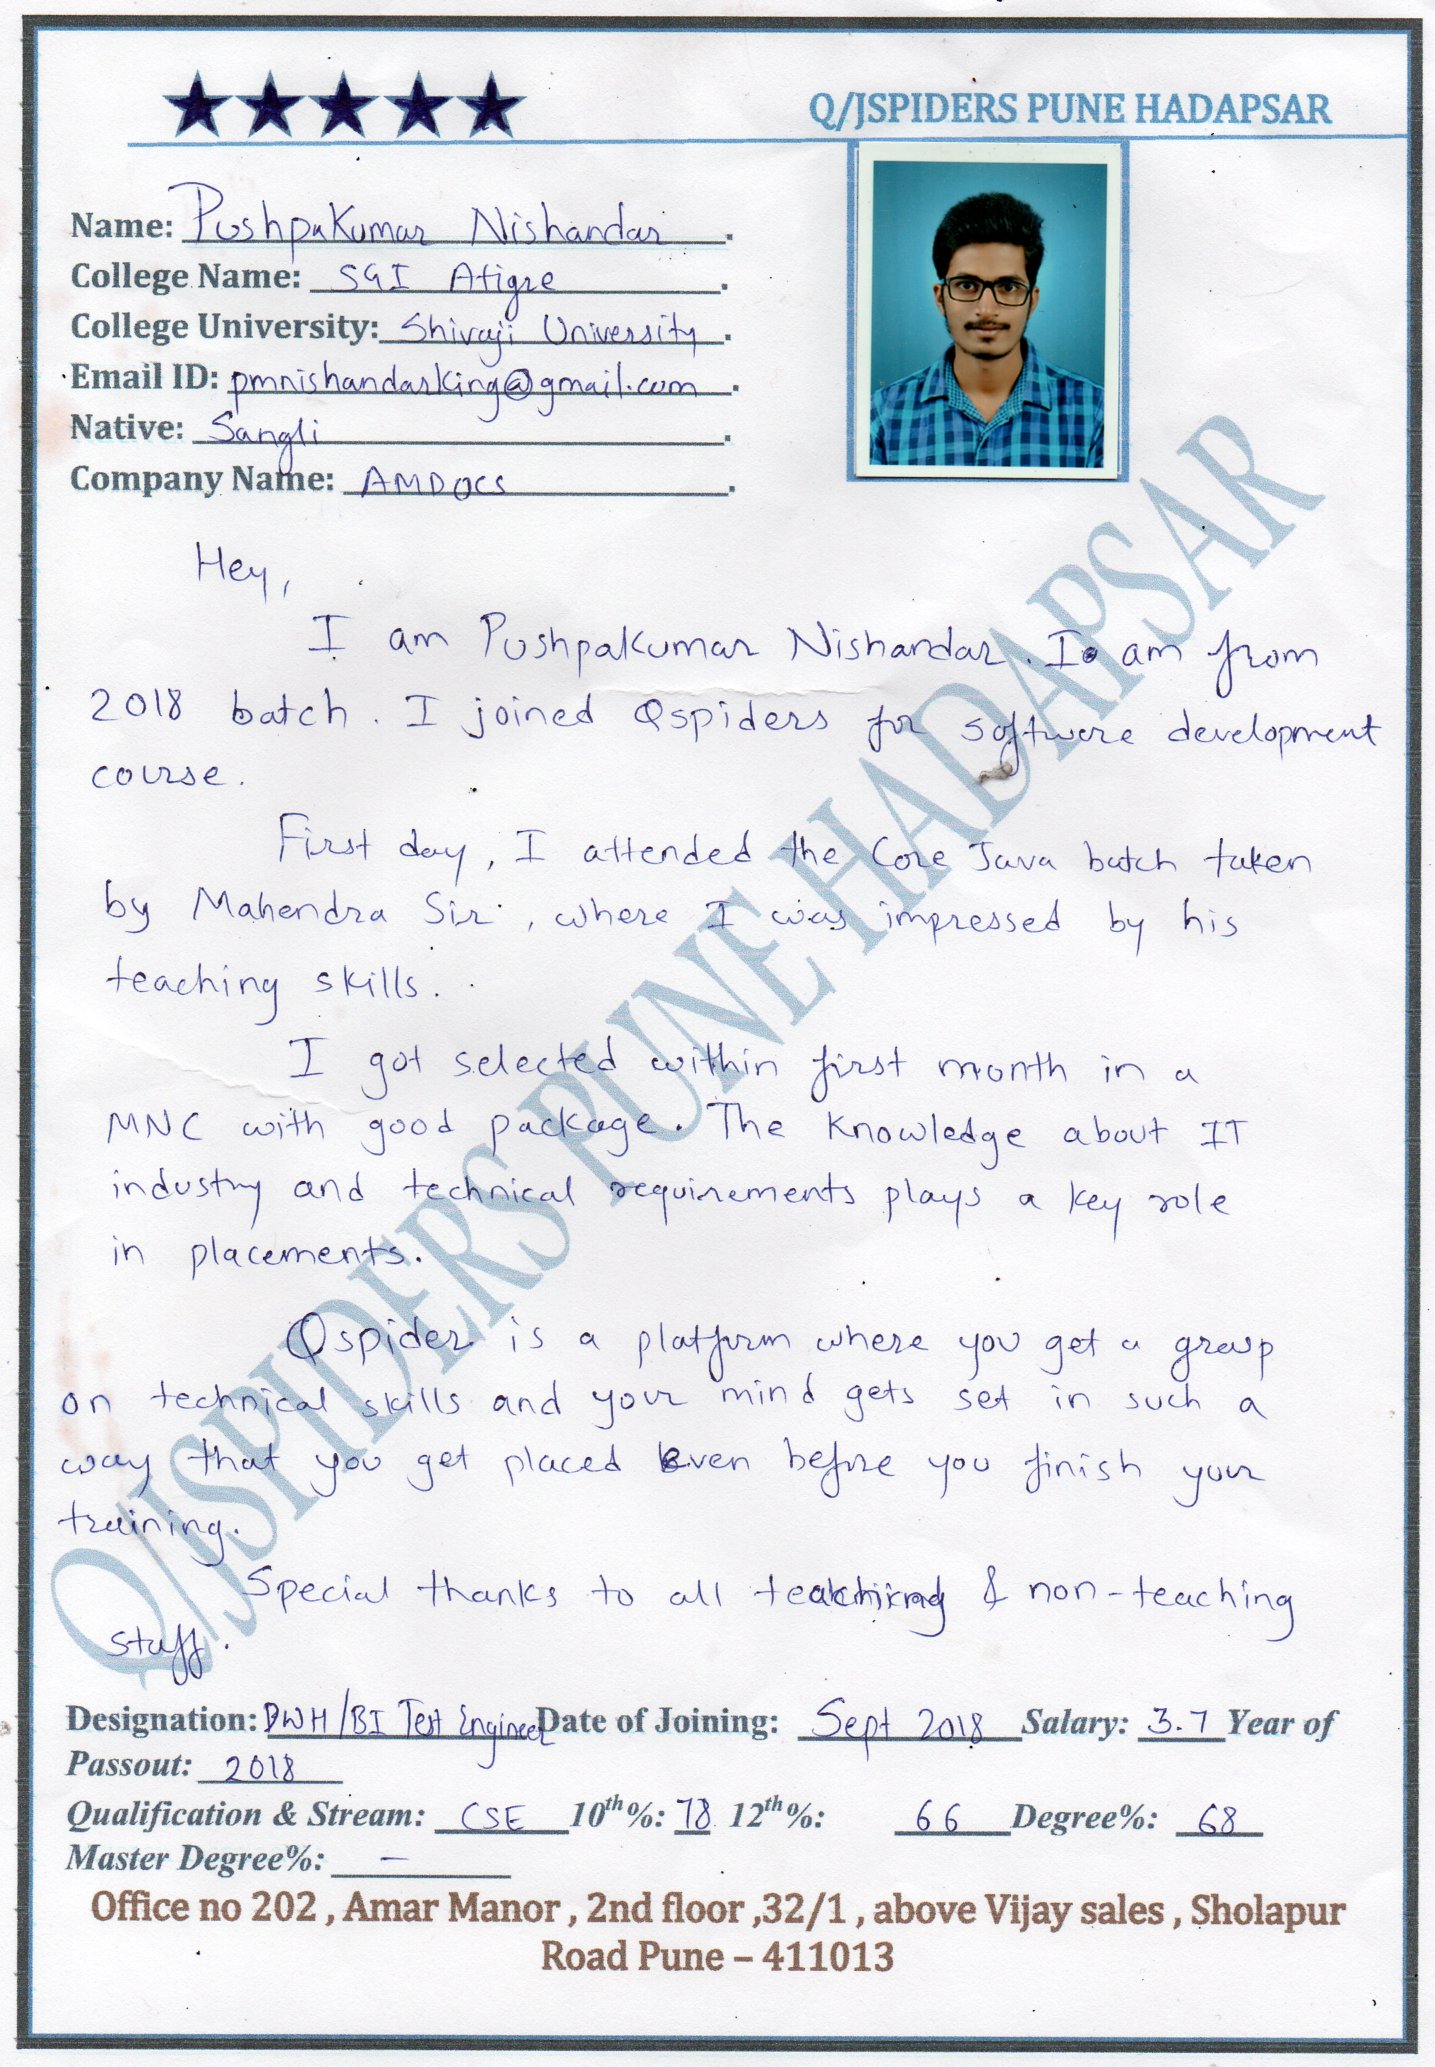 Q/JSPIDERS PUNE HADAPSAR
Name: PushpaKumar Nishandar.
College Name: SGI Atigre.
College University: Shivaji University.
Email ID: pmnishandarking@gmail.com.
Native: Sangli.
Company Name: AMDOCS.
Hey,
I am Pushpakumar Nishandar. I am from
2018 batch. I joined Qspiders for software development
course.
First day, I attended the Core Java batch taken
by Mahendra Sir, where I was impressed by his
teaching skills.
I got selected within first month in a
MNC with good package. The knowledge about IT
industry and technical requirements plays a key role
in placements.
Qspider is a platform where you get a grasp
on technical skills and your mind gets set in such a
way that you get placed even before you finish your
training.
Special thanks to all teaching & non-teaching
staff.
Designation: DWH/BI Test Engineer Date of Joining: Sept 2018 Salary: 3.7 Year of
Passout: 2018
Qualification & Stream: CSE 10th%: 78 12th%: 66 Degree%: 68
Master Degree%: -
Office no 202 , Amar Manor , 2nd floor ,32/1 , above Vijay sales , Sholapur
Road Pune – 411013
Q/JSPIDERS PUNE HADAPSAR